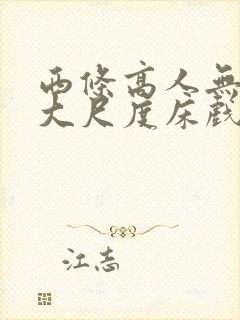 兩條高人無
大尺度床戲
江志